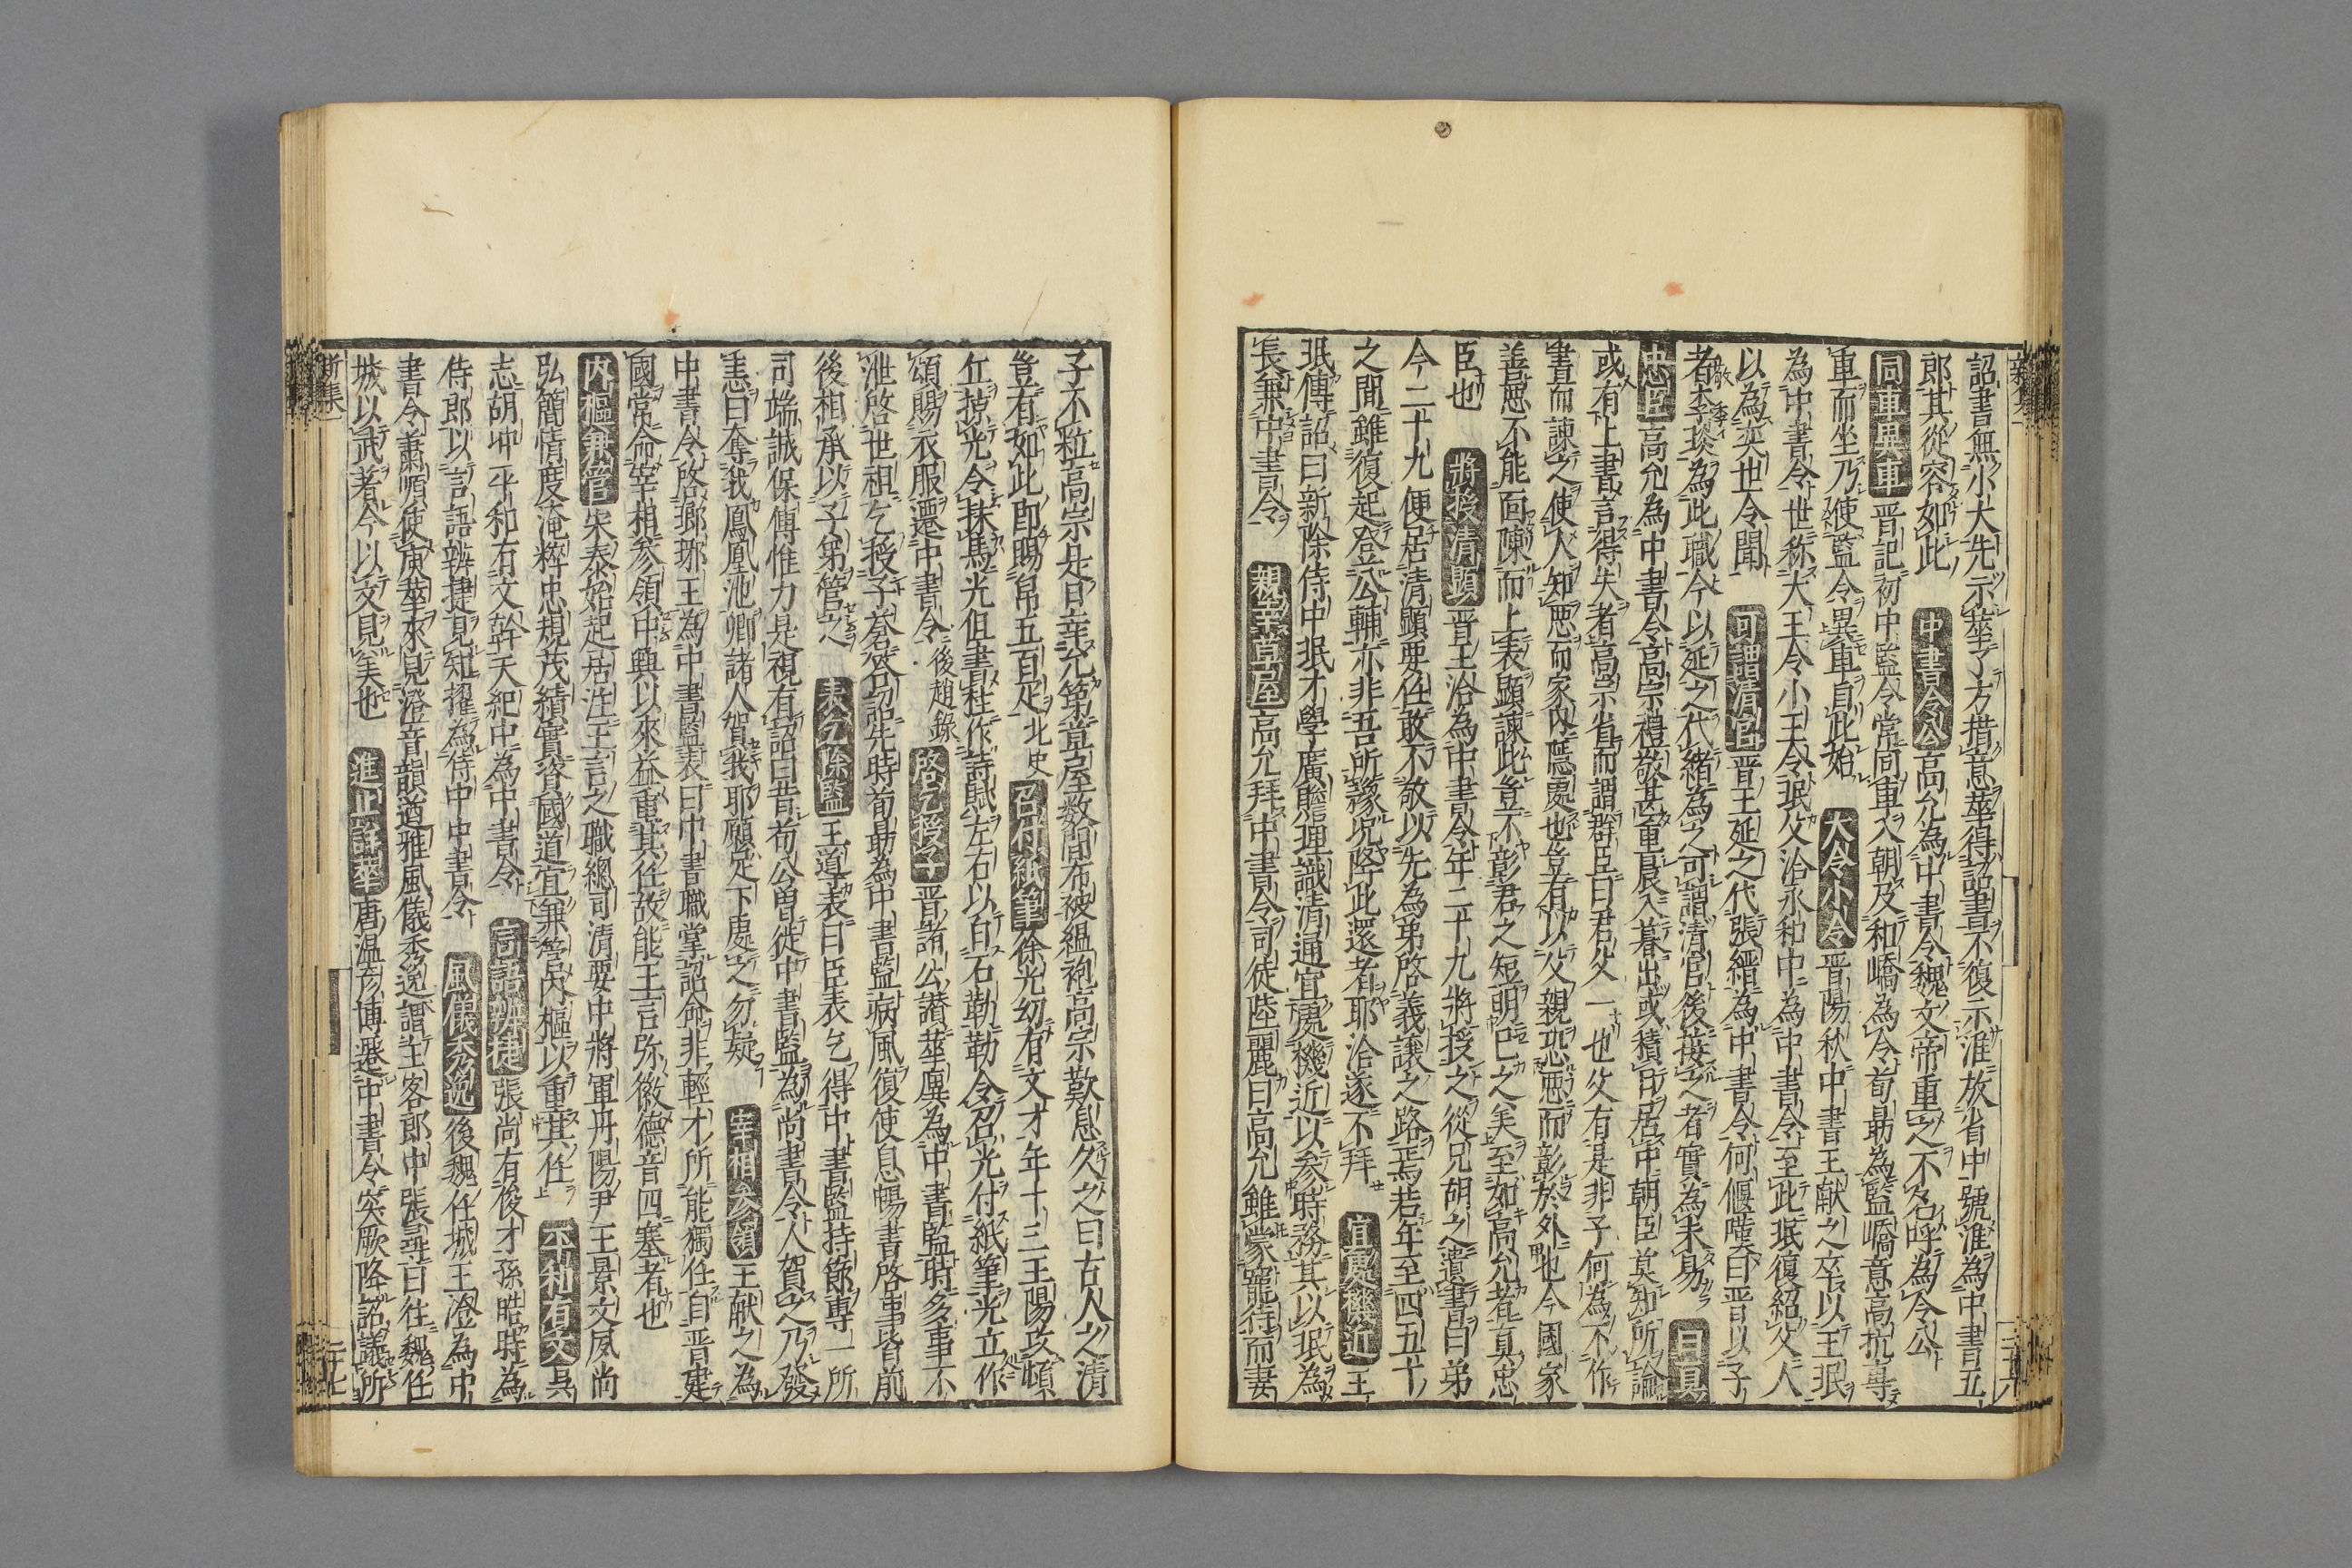 詔書無小大先示華了方措意華得詔書不復示淮放省中號淮為中書五
郎其從容如此 中書令公 高允為中書令魏文帝重之不名呼為令公
同車異車 晋記初中監令常同車入朝及和嶠為令荀勗為監嶠意高抗專
車而坐乃使監令異車自此始 大令小令 晋陽秋中書王献之卒以王珉
為中書令世称大王令小王令珉父洽永和中為中書令至此珉復紹父人
以為奕世令聞 可謂清官 晋王延之代張緒為中書令何偃嘆曰晋以子
敬李琰為此職今以延之代緒為之可謂清官後接之者實為未易 目真
忠臣 高允為中書令高宗禮敬甚重晨入暮出或積日居中朝臣莫知所論
或有上書言得失者高宗省而謂群臣曰君父一也父有是非子何為不作
書而諫之使人知悪而家内隱處也豈有以父親恐悪而彰於外也今國家
善悪不能面陳而上表顯諫此豈不彰君之短明己之美至如高允者真忠
臣也 將授清顯 晋王洽為中書令年二十九將授之從兄胡之遺書曰弟
今二十九便居清顯要任敢不敬以先為弟啓義讓之路焉若年至四五十
之間雖復起登公輔亦非吾所豫况降此還者耶洽遂不拜 宜處機近 王
珉傳詔曰新除侍中珉才學廣贍理識清通宜處機近以参時務其以珉為
長兼中書令 親幸草屋 高允拜中書令司徒陸麗曰高允雖蒙寵待而妻
子不粒高宗是日幸允第草屋数間布被緼袍高宗歎息久之曰古人之清
豈有如此即賜帛五百疋北史 召付紙筆 徐光幼有文才年十三王陽攻頓
丘掠光令抹馬光但書柱作詩賦左右以白石勒勒令召光付紙筆光立作
頌賜衣服還中書令後趙錄 啓乞授子 晋諸公讃華廙為中書監時多事不
泄啓世祖乞授子薈草詔先時荀勗為中書監病風復使息暢書啓事皆前
後相承以子弟管之 表乞除監 王導表曰臣表乞得中書監持節專一所
司端誠保傅惟力是視有詔曰昔荀公曽從中書監為尚書令人賀之乃發
恚曰奪我鳳凰池卿諸人賀我耶願足下處之勿疑 宰相参領 王献之為
中書令啓瑯琊王為中書監表曰中書職掌詔命非輕才所能獨任自晋建
國常命宰相参領中興以來益重其任故能王言弥徽德音四塞者也
内樞兼管 宋泰始起居注王言之職總司清要中將軍丹陽尹王景文夙尚
弘簡情度淹粹忠規茂績實資國道宜兼管内樞以重其任 平和有文 吳
志胡冲平和有文幹天紀中為中書令 言語辨捷 張尚有俊才孫晧時為
侍郎以言語辨捷見知擢為侍中中書令 風儀秀逸 後魏任城王澄為中
書令蕭順使庾蓽來見澄音韻遒雅風儀秀逸謂主客郎中張尋曰往魏任
城以武著今以文見美也 進止詳華 唐温彦博遷中書令突厥降詔議所
二十七